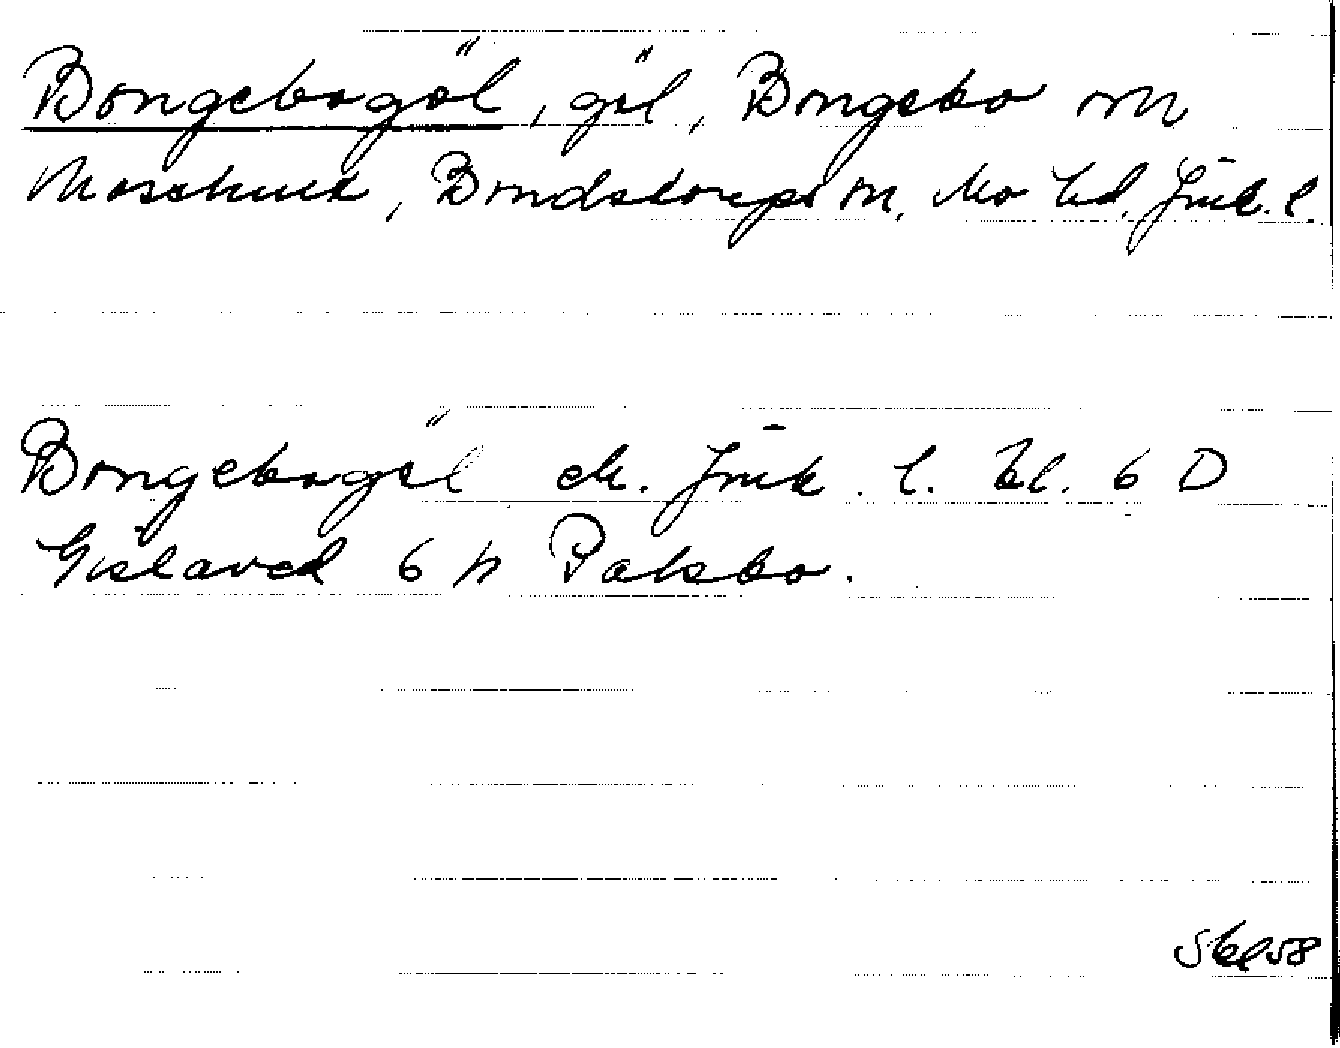 Bongebogöl, göl, Bongebo m
Moschult, Bondstorps sn, Mo hd, Jnk. l.
Bongebogöl ek. Jnk. l. bl. 6 D
Gislaved 6 h Palsbo.